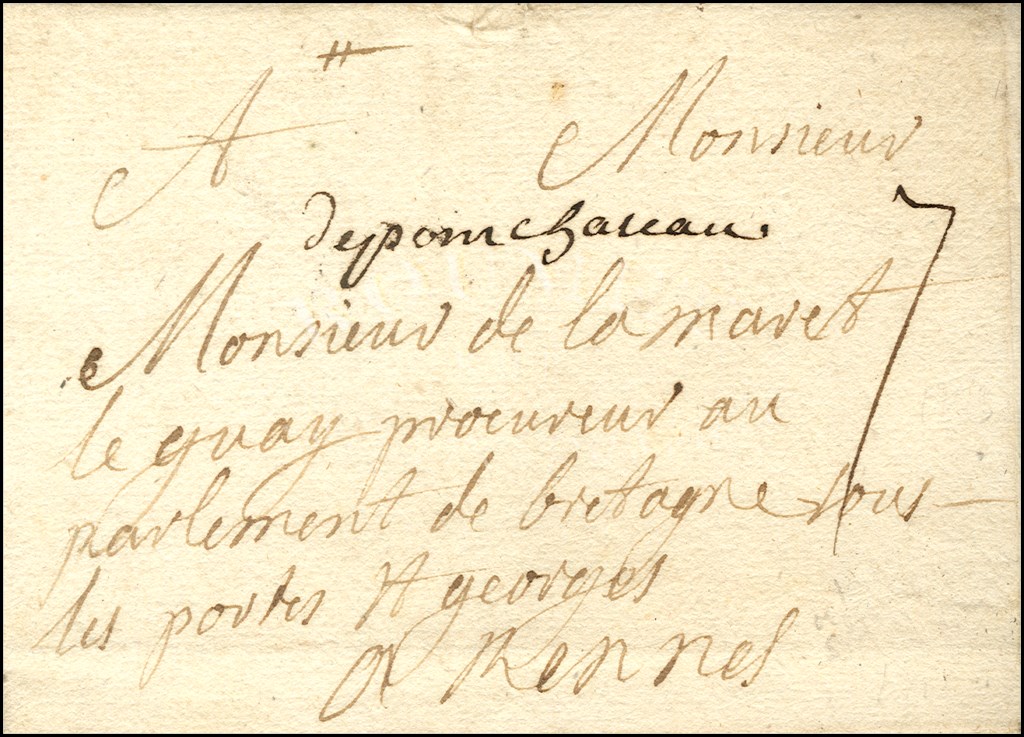 A Monsieur
depomchaseau
Monsieur de la maret
le quay procureur au
parlement de bretagne sous
les portes St georges
a Rennes
7